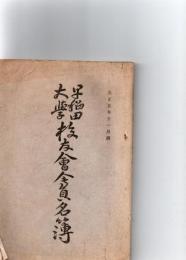 早稲田
大學校友會會員名簿